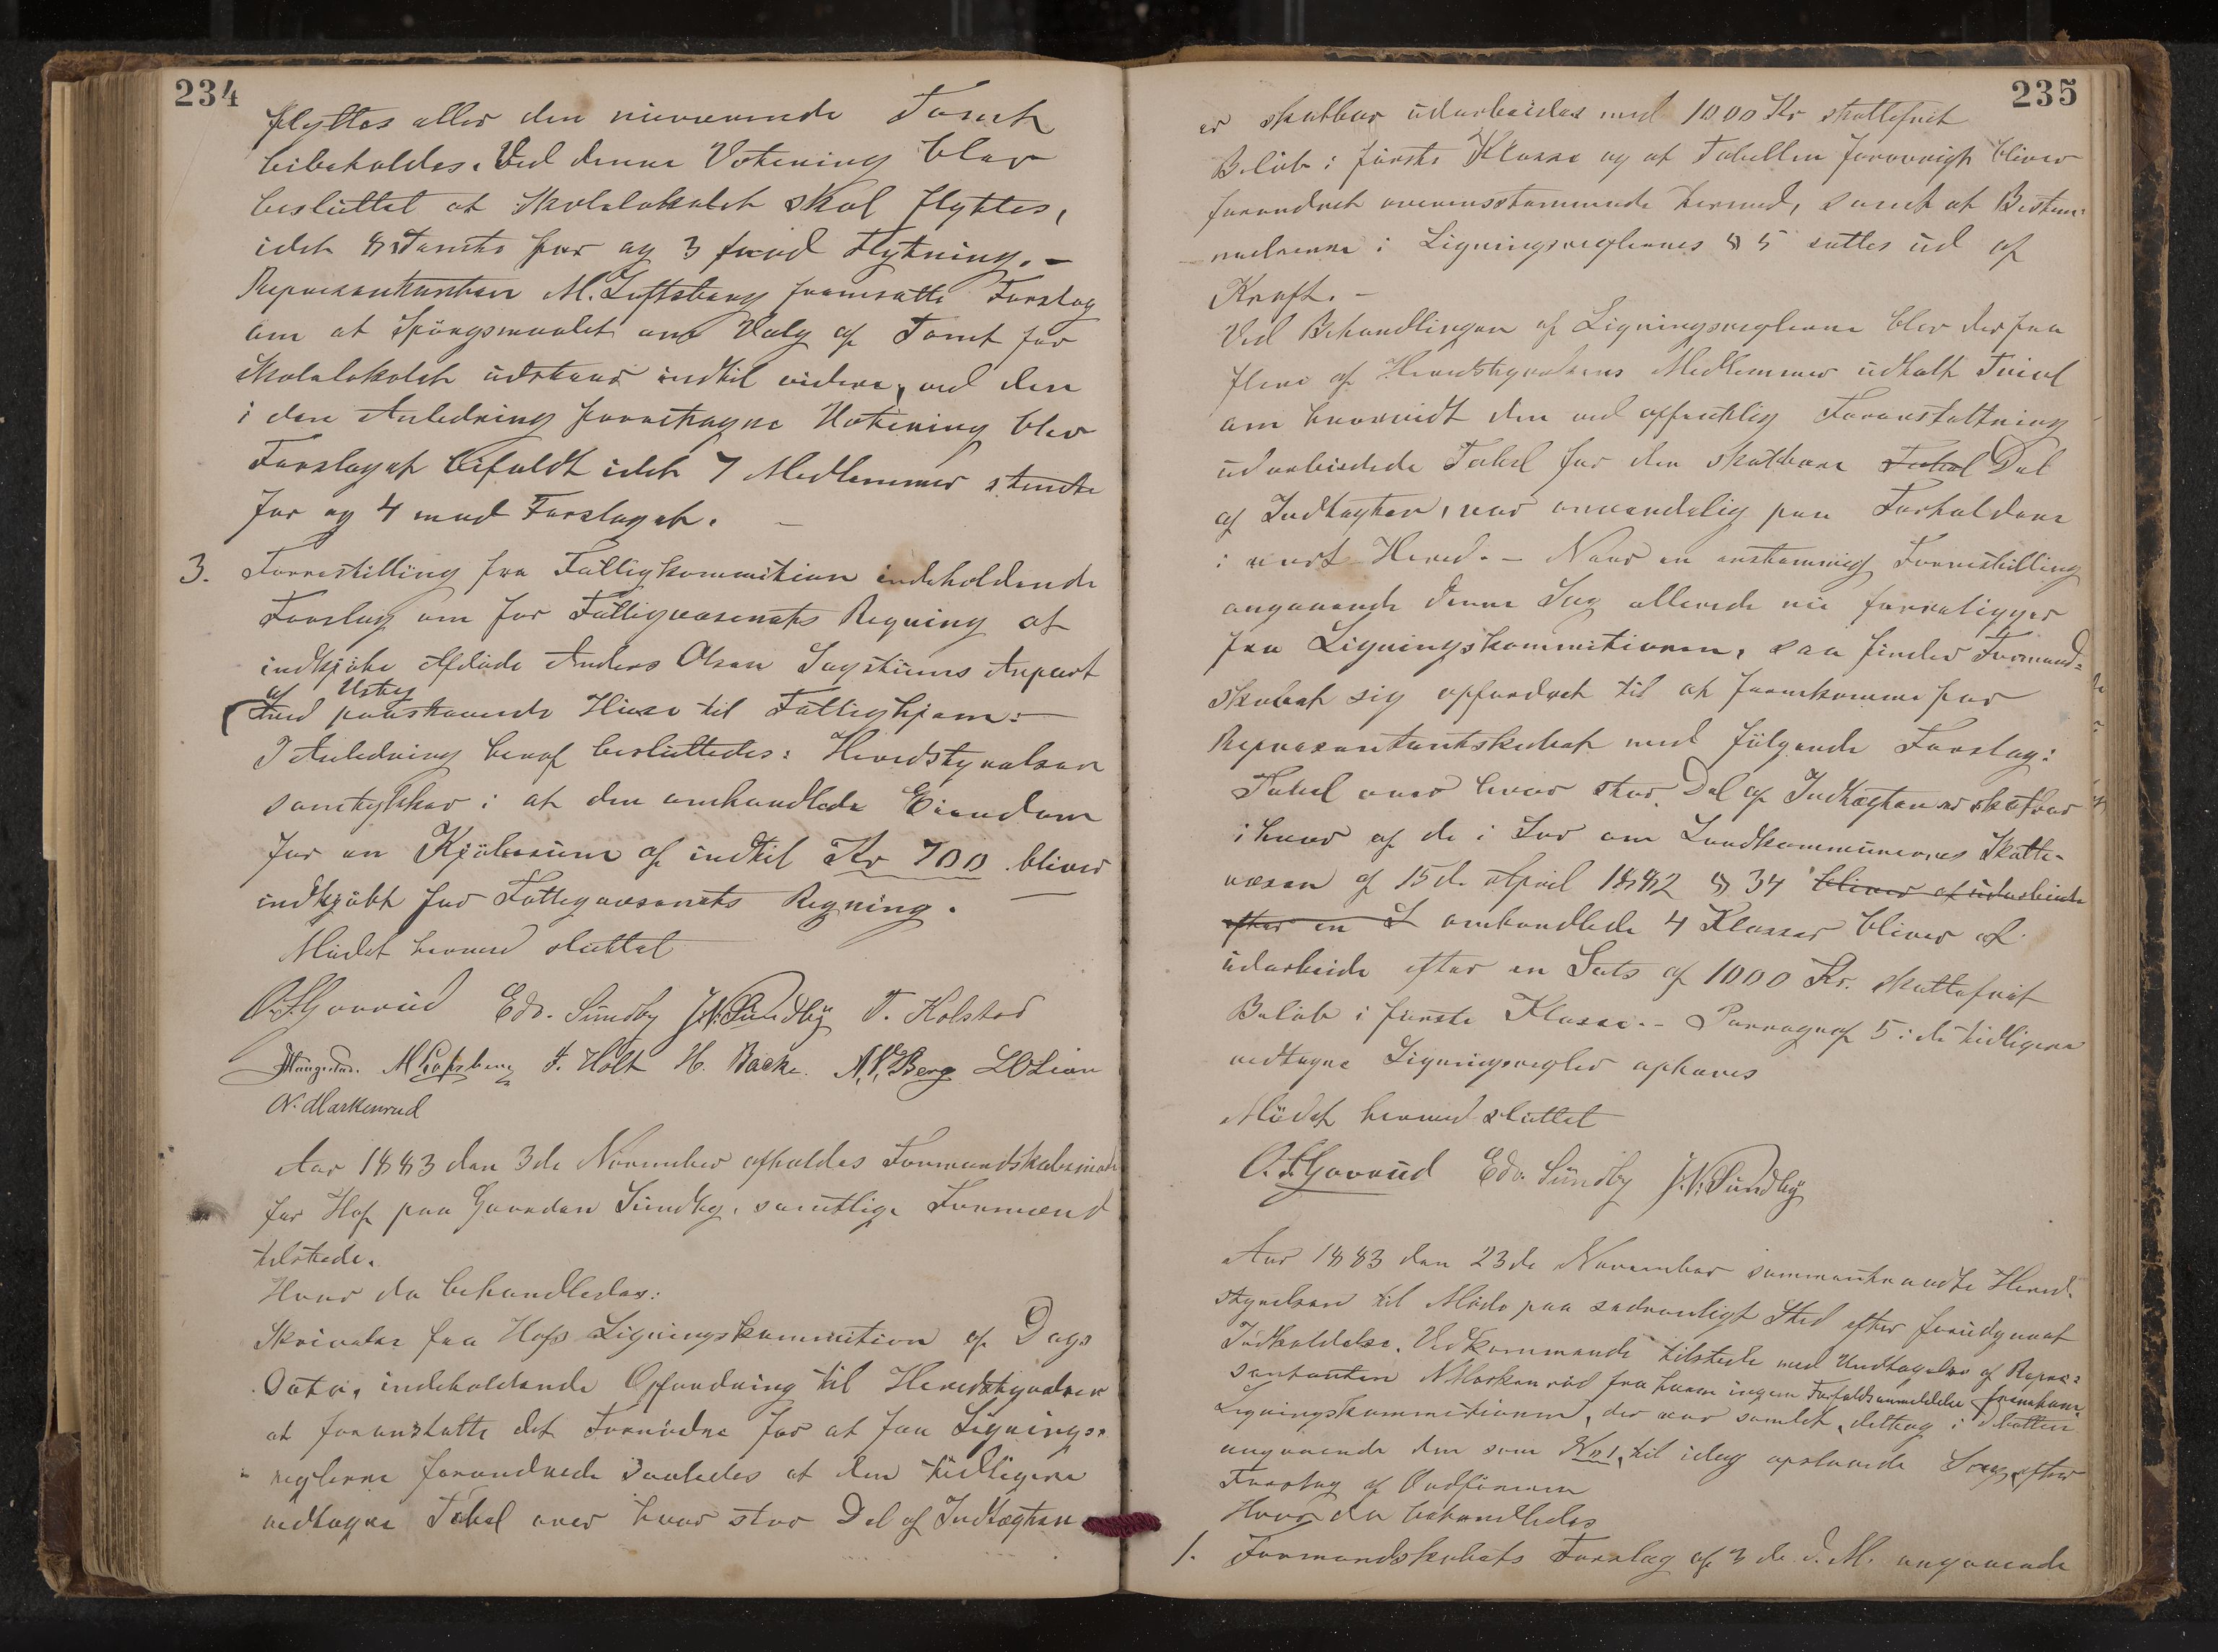 234
flyttes eller den nuværende Tomt
bibeholdes. Ved denne Votering blev
besluttet at Skolelokalet skal flyttes,
idet 8 stemte for og 3 imod Flytning. –
Repræsentanten M. Loftsberg fremsatte Forslag
om at Spörgsmaalet om Valg af Tomt for
Skolelokalet udstaar indtil videre, ved den
i den Anledning foretagne Votering blev
Forslaget bifaldt idet 7 Medlemmer stemte
for og 4 mod Forslaget. –
3. Forestilling fra Fattigkommitionen indeholdende
Forslag om for Fattigvæsenets Regning at
indkjöbe afdöde Anders Olsen Sagstuens Anpart
af Ustey
med paastaaende Huse til Fattighjem: –
I Anledning heraf besluttedes: Heredstyrelsen
samtykker i at den omhandlede Eiendom
for en Kjöbesum af indtil Kr 700 bliver
indkjöbt for Fattigvæsenets Regning. –
Mödet hermed sluttet
O. S. Gaarud Edv. Sundby J. N. Sundby T. Holstad
M Lofsberg F. Holt H. Bache. A. P. Berg L O Lien
N. Markenrud
Aar 1883 den 3de November afholdes Formandskabsmöde
for Hof paa Gaarden Sundby, samtlige Formænd
tilstede.
Hvor da behandledes:
Skrivelse fra Hofs Ligningskommition af Dags
Dato, indeholdende Opfordring til Heredstyrelsen
at foranstalte det Fornödne for at faa Lignings-
reglerne forandrede saaledes at den tidligere
vedtagne Tabel over hvor stor Del af Indtægten
235
er skatbar udarbeides med 1000 Kr skattefrit
Belöb i förste Klasse og at Tabellen forövrigt bliver
forandret overensstemmende hermed, samt at Bestem-
melserne i Ligningsreglernes § 5 sættes ud af
Kraft. –
Ved Behandlingen af Ligningsreglerne blev der fra
flere af Heredstyrelsens Medlemmer udtalt Tvivl
om hvorvidt den ved offentlig Foranstaltning
udarbeidede Tabel for den skatbare Tabel Del
af Indtægten, var anvendelig paa Forholdene
i vort Hered. – Naar en enstemmig Forestilling
angaaende denne Sag allerede nu foreligger
fra Ligningskommitionen, saa finder Formand-
skabet sig opfordret til at fremkomme for
Repræsentantskabet med fölgende Forslag:
Tabel over hvor stor Del af Indtægten er skatbar
i hver af de i Lov om Landkommunernes Skatte-
væsen af 15de April 1882 § 34 bliver at udarbeide
efter en S omhandlede 4 Klasser bliver at
udarbeide efter en Sats af 1000 Kr. skattefrit
Belöb i förste Klasse. – Paragraf 5 i de tidligere
vedtagne Ligningsregler ophæves
Mödet hermed sluttet
O. S. Gaarud Edv. Sundby J. N. Sundby
Aar 1883 den 23de November sammentraadte Hered-
styrelsen til Möde paa sædvanligt Sted efter forudgaaet
Indkaldelse. Vedkommende tilstede med Undtagelse af Repræ-
sentanten N Markenrud fra hvem ingen Forfaldsanmeldelse fremkom.
Ligningskommitionen, der var samlet, deltog i Debatten
angaaende den som No 1, til idag opstaaede Sag, efter
Forslag af Ordföreren
Hvor da behandledes
1. Formandskabets Forslag af 3de d. M. angaaende